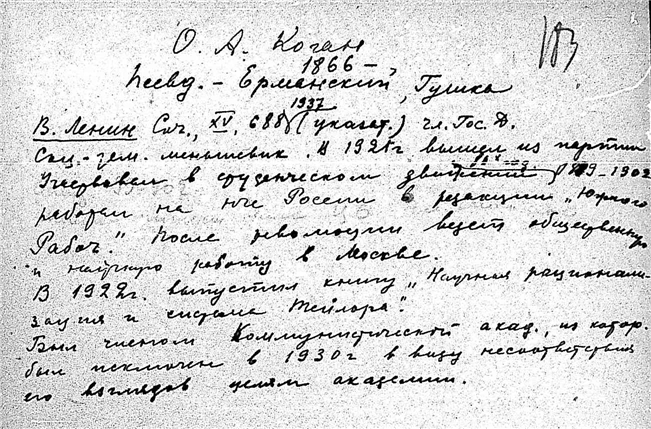 183
О. А. Коган
1866 —
Псевд. - Ерманский, Гушка
1937
В. Ленин Соч., XV, 688 (указат.) чл. Гос. Д.
Соц.-дем. меньшевик. В 1921г вышел из партии
Участвовал в студенческом движении, 1899-1902
работал на юге России в редакции „Южного
Рабоч." После революции ведет общественную
и научную работу в Москве.
В 1922г. выпустил книгу „Научная рационали-
зация и система Тейлора".
Был членом Коммунистической акад., из котор.
был исключен в 1930г в виду несоответствия
его взглядов целям академии.